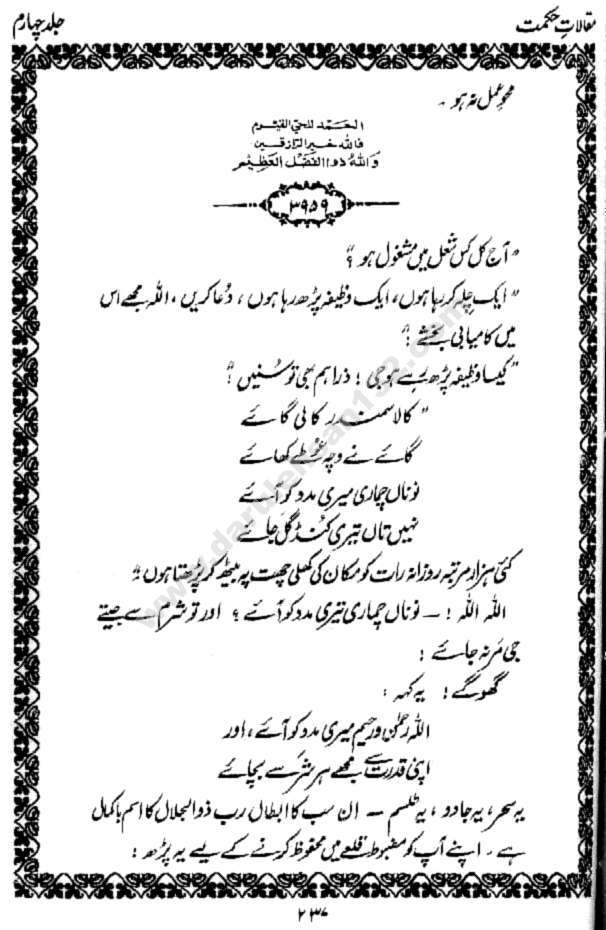 مقالاتِ حکمت
جلد چہارم
محوِ عمل نہ ہو۔
الحمد للحی القیوم
فاللہ خیر الرازقین
واللہُ ذوالفضل العظیم
۳۹۵۹
"آج کل کس شغل میں مشغول ہو؟"
"ایک چلہ کر رہا ہوں، ایک وظیفہ پڑھ رہا ہوں، دُعا کریں، اللہ مجھے اس
میں کامیابی بخشے!"
"کیسا وظیفہ پڑھ رہے ہو جی! ذرا ہم بھی تو سُنیں!"
"کالا سمندر کالی گائے
گائے نے وچہ غوطے کھائے
نوناں چماری میری مدد کو آئے
نہیں تاں تیری کُنڈ گل جائے
کئی ہزار مرتبہ روزانہ رات کو مکان کی کھلی چھت پہ بیٹھ کر پڑھتا ہوں!"
اللہ اللہ! — نوناں چماری تیری مدد کو آئے؟ اور تو شرم سے جیتے
جی مر نہ جائے!
گھوگے! یہ کہہ:
اللہ رحمٰن و رحیم میری مدد کو آئے، اور
اپنی قدرت سے مجھے ہر شر سے بچائے
یہ سحر، یہ جادو، یہ طلسم — ان سب کا ابطال رب ذوالجلال کا اسم باکمال
ہے۔ اپنے آپ کو مضبوط قلعے میں محفوظ کرنے کے لیے یہ پڑھ:
۲۳۷
www.darulehsan132.com